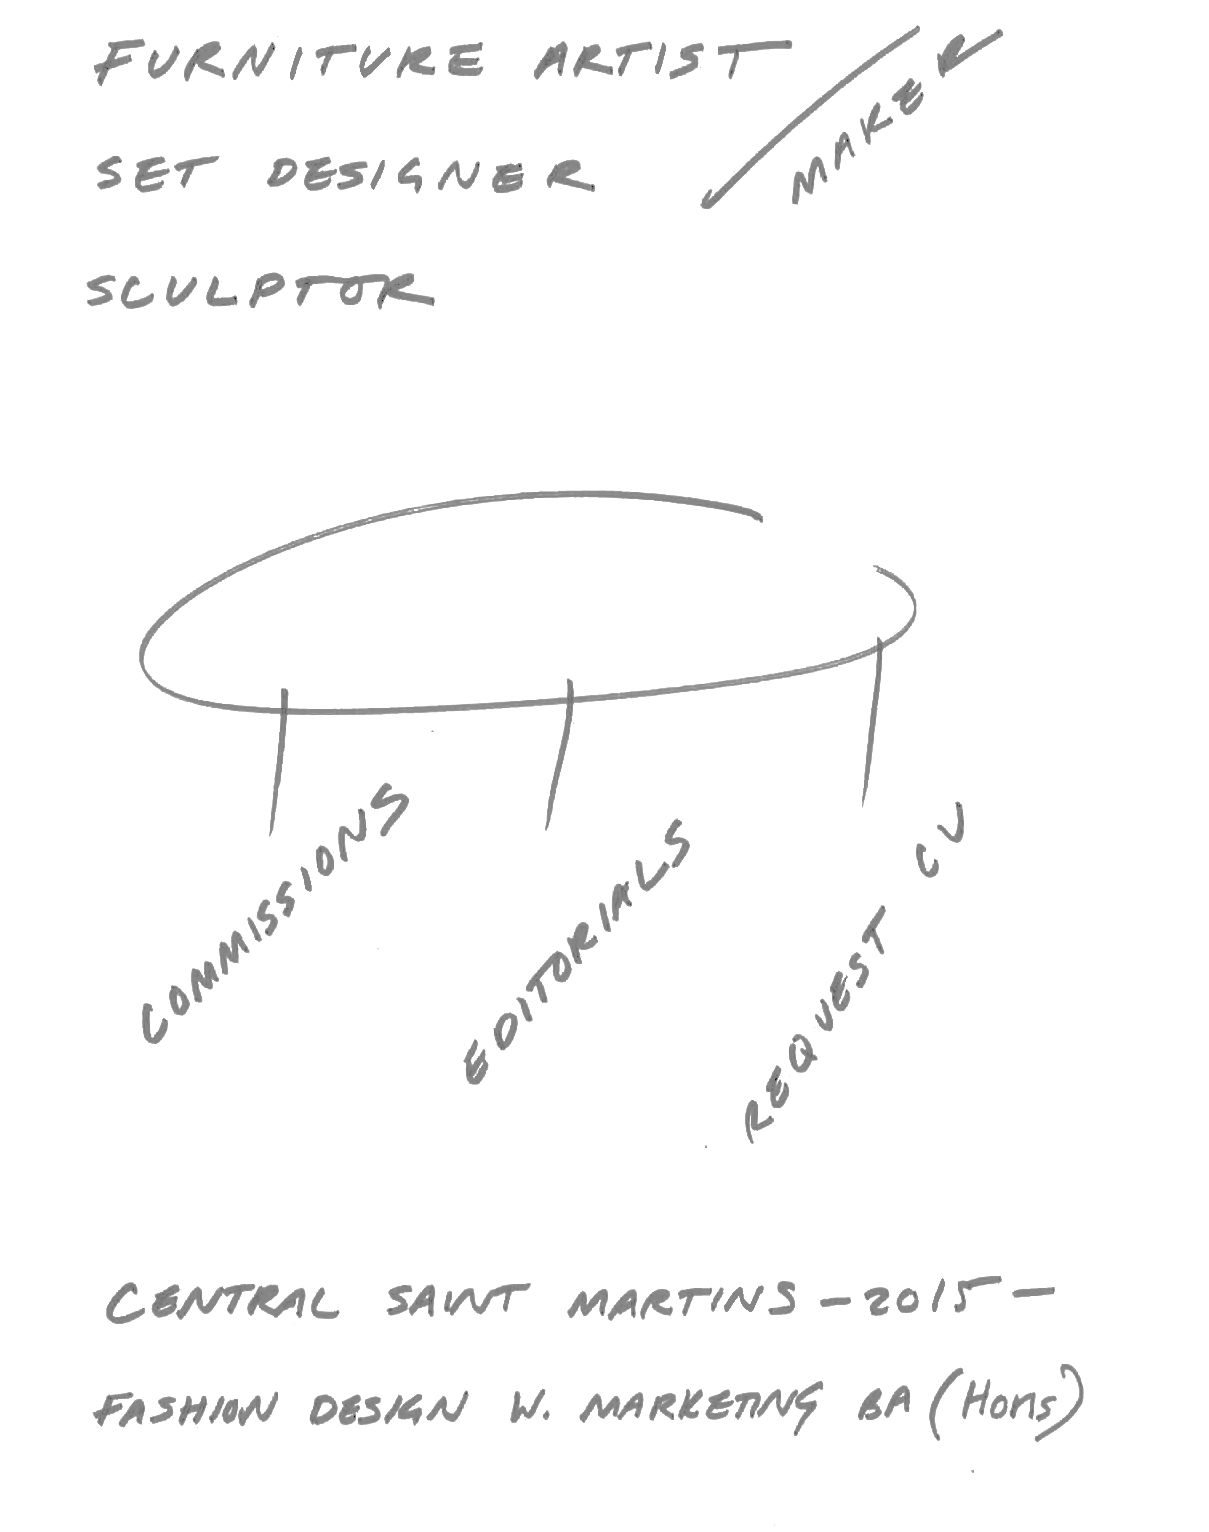 FURNITURE ARTIST
MAKER
SET DESIGNER
SCULPTOR
COMMISSIONS
EDITORIALS
REQUEST CV
CENTRAL SAINT MARTINS - 2015 -
FASHION DESIGN W. MARKETING BA (Hons)